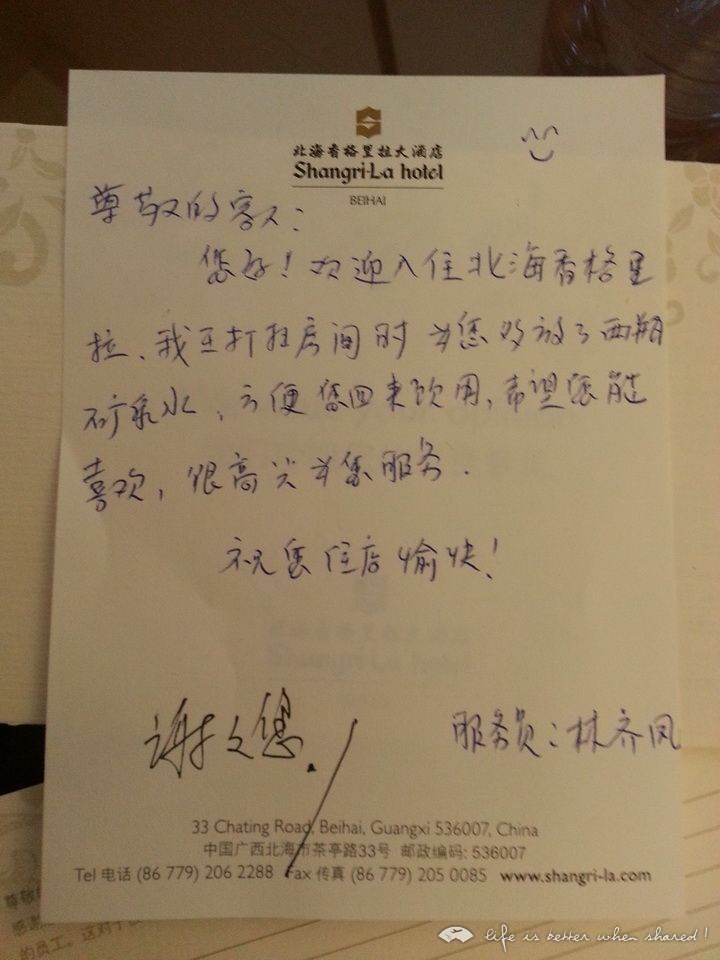 北海香格里拉大酒店
Shangri-La hotel
BEIHAI
尊敬的客人：
您好！欢迎入住北海香格里
拉、我在打扫房间时为您多放了两瓶
矿泉水、方便您回来饮用，希望您能
喜欢，很高兴为您服务.
祝您住店愉快！
谢谢您！
服务员：林齐凤
33 Chating Road, Beihai, Guangxi 536007, China
中国广西北海市茶亭路33号 邮政编码: 536007
Tel 电话 (86 779) 206 2288 Fax 传真 (86 779) 205 0085 www.shangri-la.com
尊敬
感谢
的员工。这对于
life is better when shared!